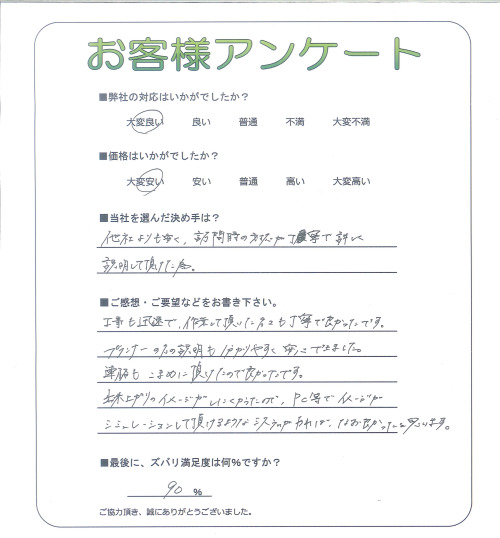 お客様アンケート
■弊社の対応はいかがでしたか？
大変良い 良い 普通 不満 大変不満
■価格はいかがでしたか？
大変安い 安い 普通 高い 大変高い
■当社を選んだ決め手は？
他社よりも安く、訪問時の対応が丁寧で詳しく
説明して頂けた為。
■ご感想・ご要望などをお書き下さい。
工事も迅速で、作業して頂いた方々も丁寧で良かったです。
プランナーの方の説明も分かりやすく安心できました。
連絡もこまめに頂けたので良かったです。
仕上がりのイメージがしにくかったので、PC等でイメージが
シミュレーションして頂けるようなシステムがあれば、なお良かったと思います。
■最後に、ズバリ満足度は何%ですか？
90 %
ご協力頂き、誠にありがとうございました。